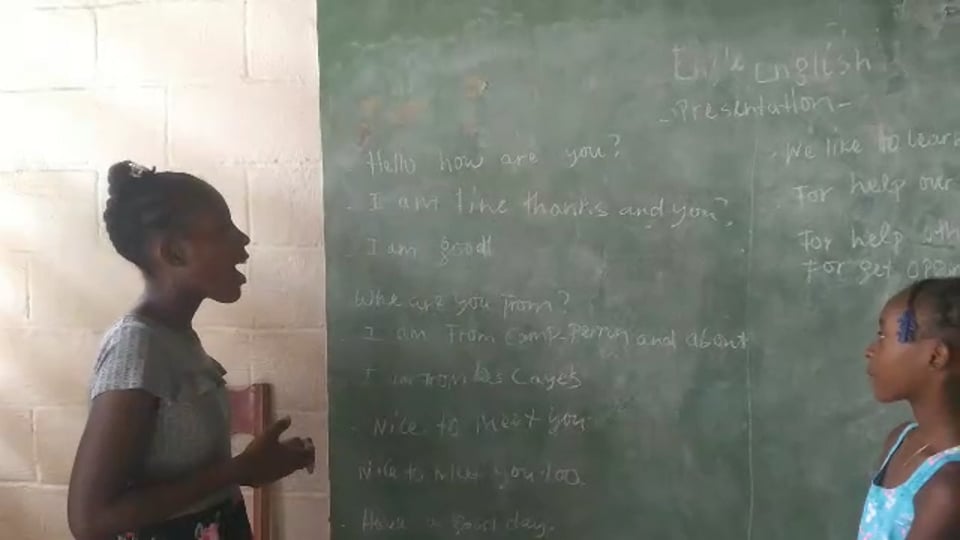 English
- Presentation -
Hello how are you?
I am fine thanks and you?
I am good
Whe are you from?
I am From Camp-Perrin and about
I am from les Cayes
Nice to meet you
Nice to meet you too
Have a good day.
We like to learn
For help our
For help oth
For get oppor